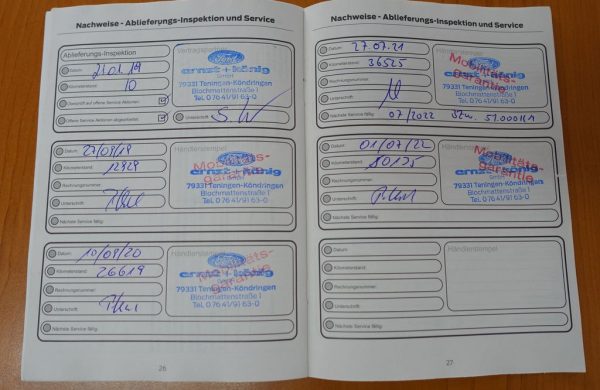 Nachweise - Ablieferungs-Inspektion und Service
Ablieferungs-Inspektion
Datum:
Kilometerstand:
10
Vertragspartner
Ford
ernst+könig
GmbH
79331 Teningen-Köndringen
Blochmattenstraße 1
Tel. 0 76 41/91 63-0
Unterschrift:
Datum:
27/08/19
Kilometerstand:
Rechnungsnummer:
Unterschrift:
Nächste Service fällig:
Händlerstempel
Ford
Mobilitäts-
garantie
ernst+könig
79331 Teningen-Köndringen
Blochmattenstraße 1
Tel. 0 76 41/91 63-0
Datum:
10/08/20
Kilometerstand:
26619
Rechnungsnummer:
Unterschrift:
Nächste Service fällig:
Händlerstempel
Ford
Mobilitäts-
garantie
ernst+könig
79331 Teningen-Köndringen
Blochmattenstraße 1
Tel. 0 76 41/91 63-0
26
Nachweise - Ablieferungs-Inspektion und Service
Datum:
27.07.21
Kilometerstand:
36525
Rechnungsnummer:
Unterschrift:
Nächste Service fällig:
07/2022
Händlerstempel
Ford
Mobilitäts-
garantie
ernst+könig
79331 Teningen-Köndringen
Blochmattenstraße 1
Tel. 0 76 41/91 63-0
Datum:
01/07/22
Kilometerstand:
Rechnungsnummer:
Unterschrift:
Nächste Service fällig:
Händlerstempel
Ford
Mobilitäts-
garantie
ernst+könig
79331 Teningen-Köndringen
Blochmattenstraße 1
Tel. 0 76 41/91 63-0
Datum:
Kilometerstand:
Rechnungsnummer:
Unterschrift:
Nächste Service fällig:
Händlerstempel
27